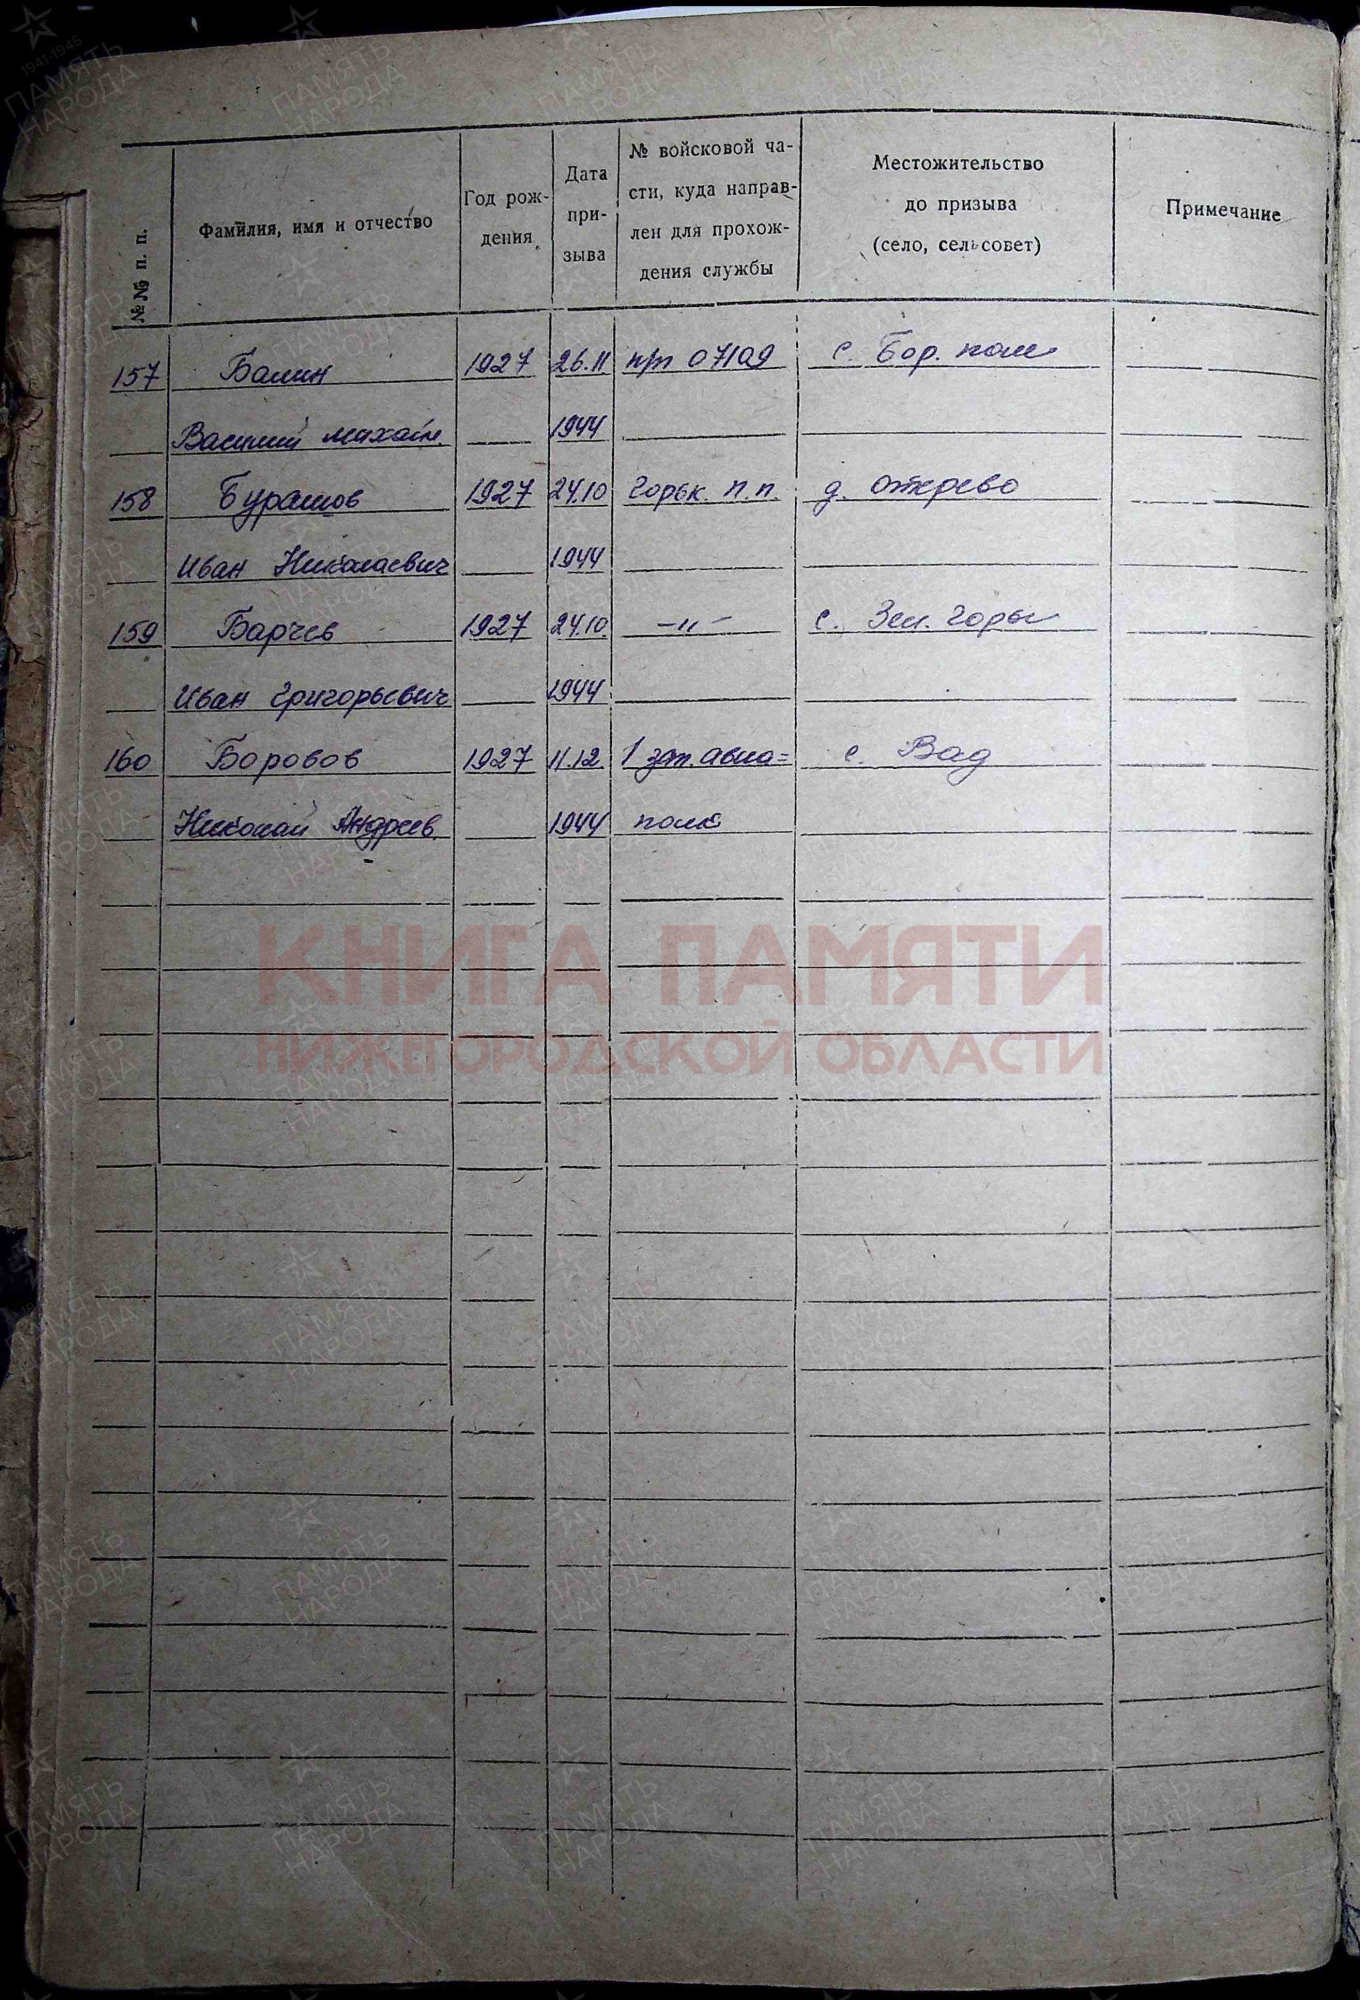 №№ п. п. Фамилия, имя и отчество Год рож-дения Дата при-зыва № войсковой ча-сти, куда направ-лен для прохож-дения службы Местожительство до призыва (село, сельсовет) Примечание
157 Балин 1927 26.11 п/п 07109 с. Бор. поле
Василий Михайл. 1944
158 Бурашов 1927 24.10 Горьк. п.п. д. Отерево
Иван Николаевич 1944
159 Барчев 1927 24.10. —"— с. Зел. Горы
Иван Григорьевич 1944
160 Боровов 1927 11.12. 1 зап. авиа= с. Вад
Николай Андреев. 1944 полк
КНИГА ПАМЯТИ
НИЖЕГОРОДСКОЙ ОБЛАСТИ
ПАМЯТЬ
НАРОДА